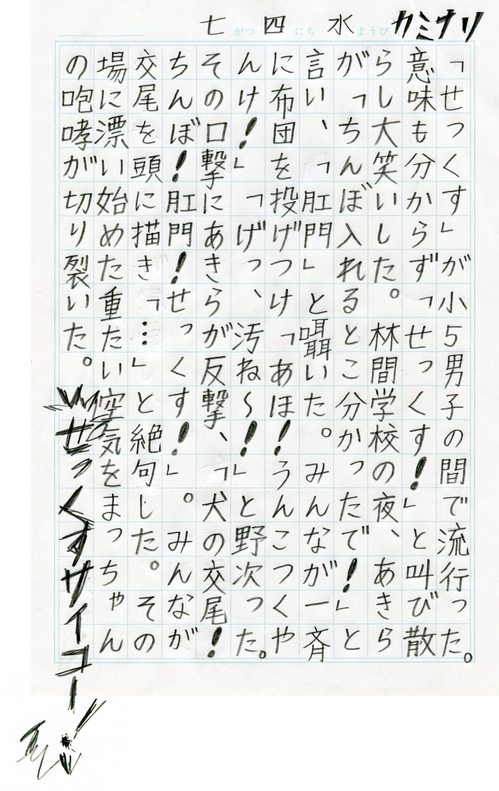 七がつ四にち水ようび カミナリ
「せっくす」が小5男子の間で流行った。
意味も分からず「せっくす!」と叫び散
らし大笑いした。林間学校の夜、あきら
が「ちんぼ入れるとこ分かったで!」と
言い、「肛門」と囁いた。みんなが一斉
に布団を投げつけ「あほ!うんこつくや
んけ!」「げっ、汚ね〜!」と野次った。
その口撃にあきらが反撃、「犬の交尾!
ちんぼ!肛門!せっくす!」。みんなが
交尾を頭に描き「…」と絶句した。その
場に漂い始めた重たい空気をまっちゃん
の咆哮が切り裂いた。「せっくすサイコー!」